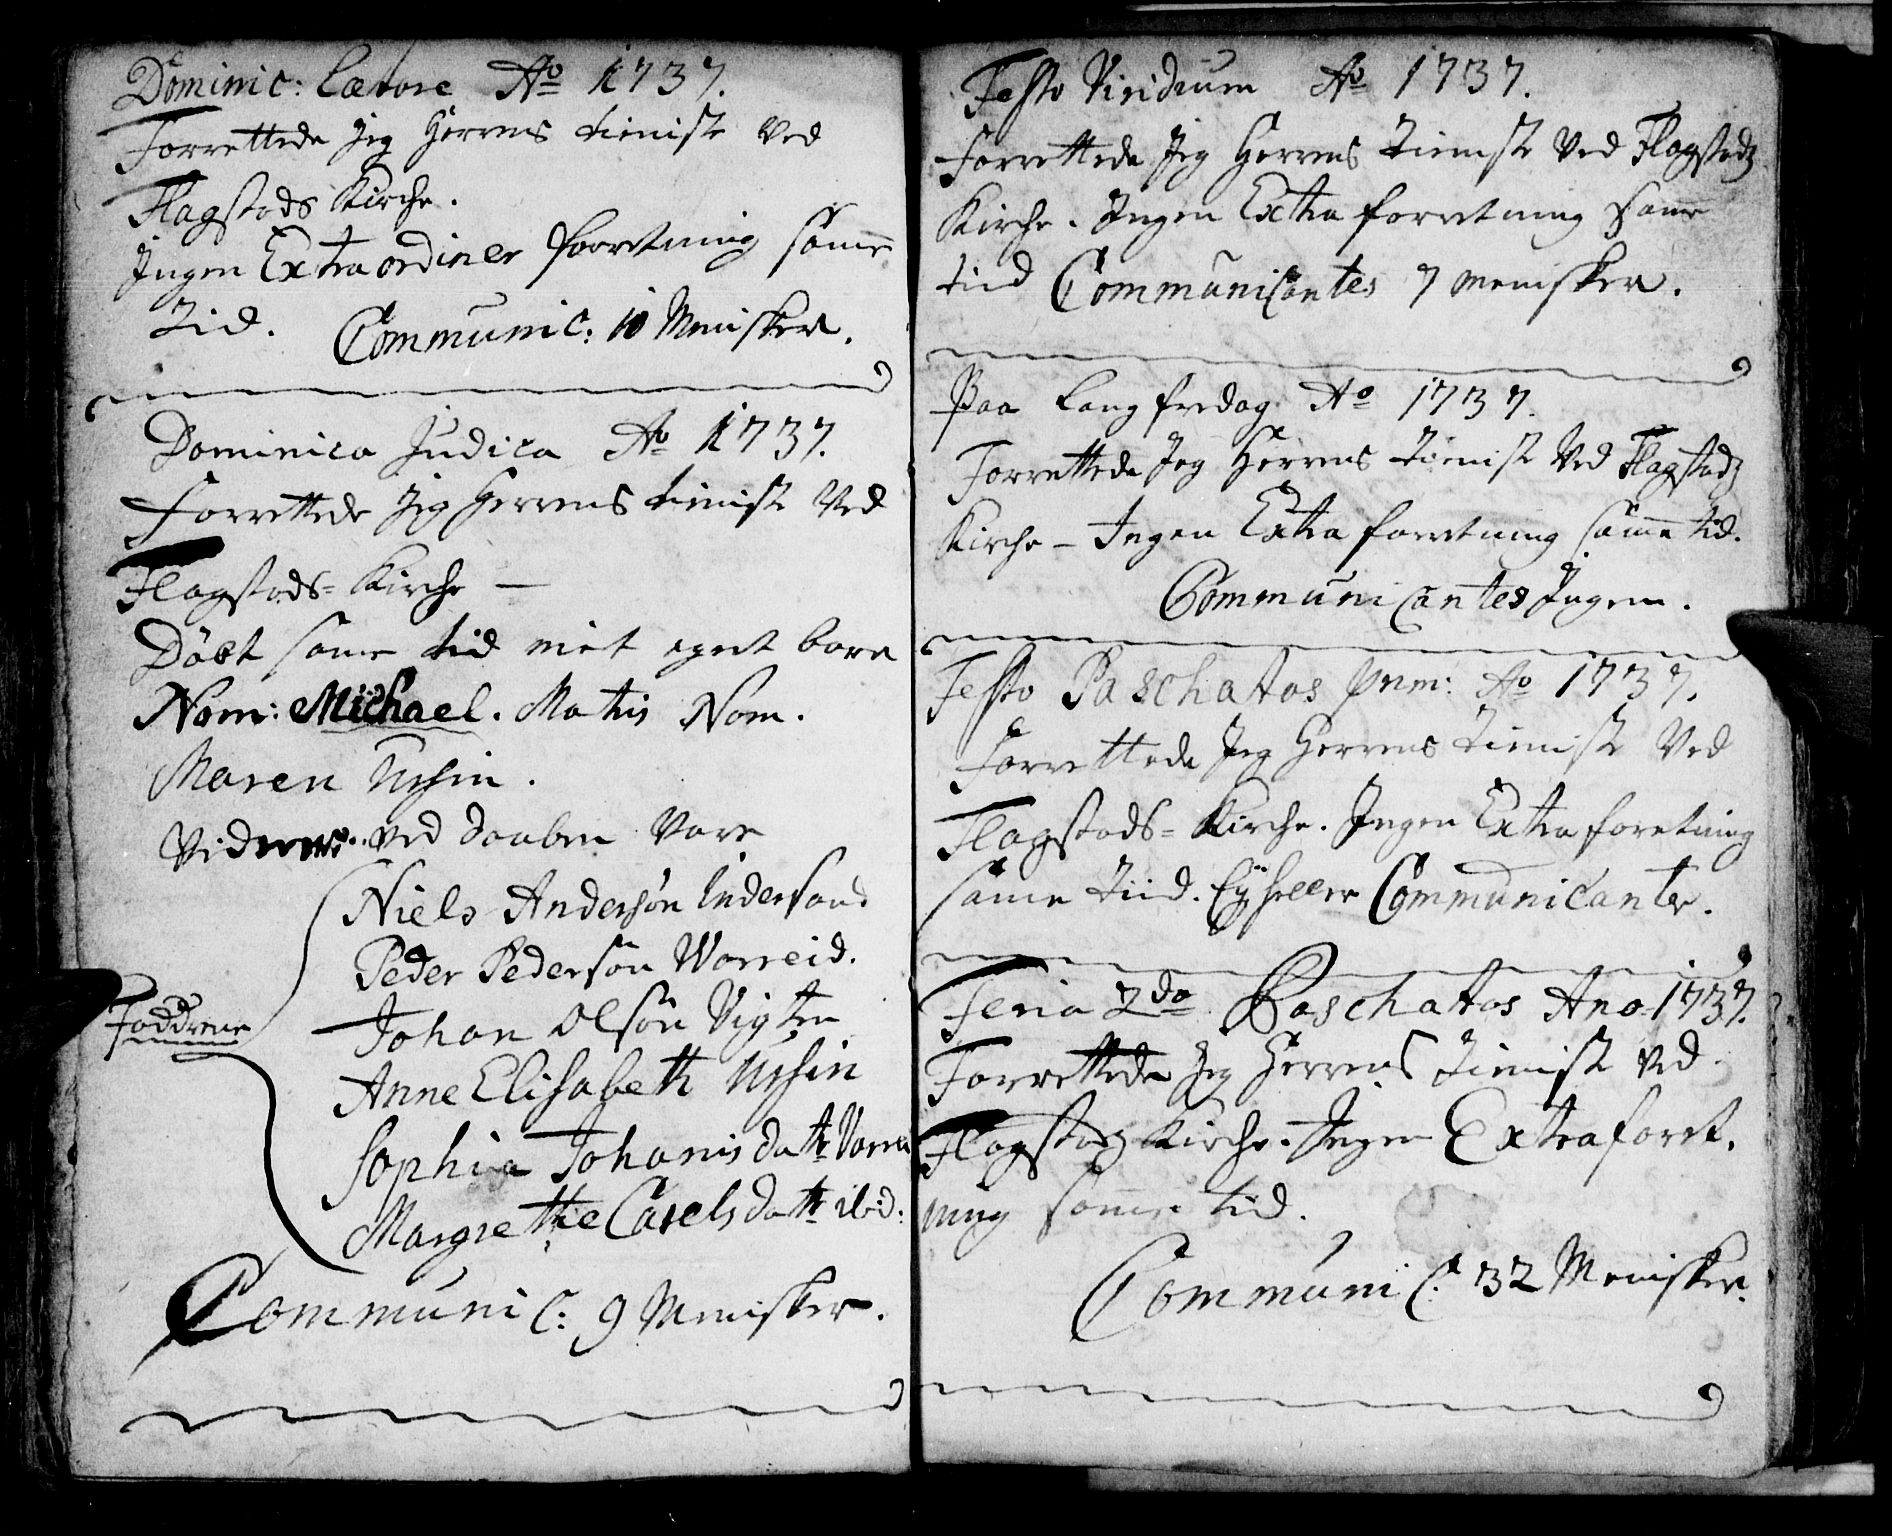 Dominic: Lætare Ao 1737.
Forrettede Jeg Herrens tieniste Ved
Flagstads Kirche.
Ingen Extraordiner forretning samme
Tid. Communic: 10 Menisker.
Dominica Judica Ao 1737.
Forrettede Jeg Herrens tieniste Ved
Flagstads= Kirche —
Döbt same tid mit eget barn
Nom: Michael. Matris Nom.
Maren
Vidner ved daaben Vare
Niels Andersön Indersand
Peder Pedersön Warreid.
Johan Olsön Vigten
Faddrene
Anne Elisabeth
Sophia Johanisdattr
Margrethe Carelsdattr ibid:
Communic: 9 Menisker.
Festo Viridium Ao 1737.
Forrettede Jeg Herrens Tieniste Ved Flagstads
Kirche. Ingen Extra forretning same
tiid Communicantes 7 Menisker.
Paa Langfredag Ao 1737.
Forrettede Jeg Herrens Tieniste Ved Flagstads
Kirche — Ingen Extra forretning same tid.
Communicantes Ingen.
Festo Paschatos prim: Ao 1737.
Forrettede Jeg Herrens Tieniste Ved
Flagstads= Kirche. Ingen Extra foretning
same tiid. Ey heller Communicanter.
Feria 2da Paschatos Ano 1737.
Forrettede Jeg Herrens Tieniste ved
Flagstads Kirche. Ingen Extra foret.
ning same tid.
Communic: 32 Menisker.